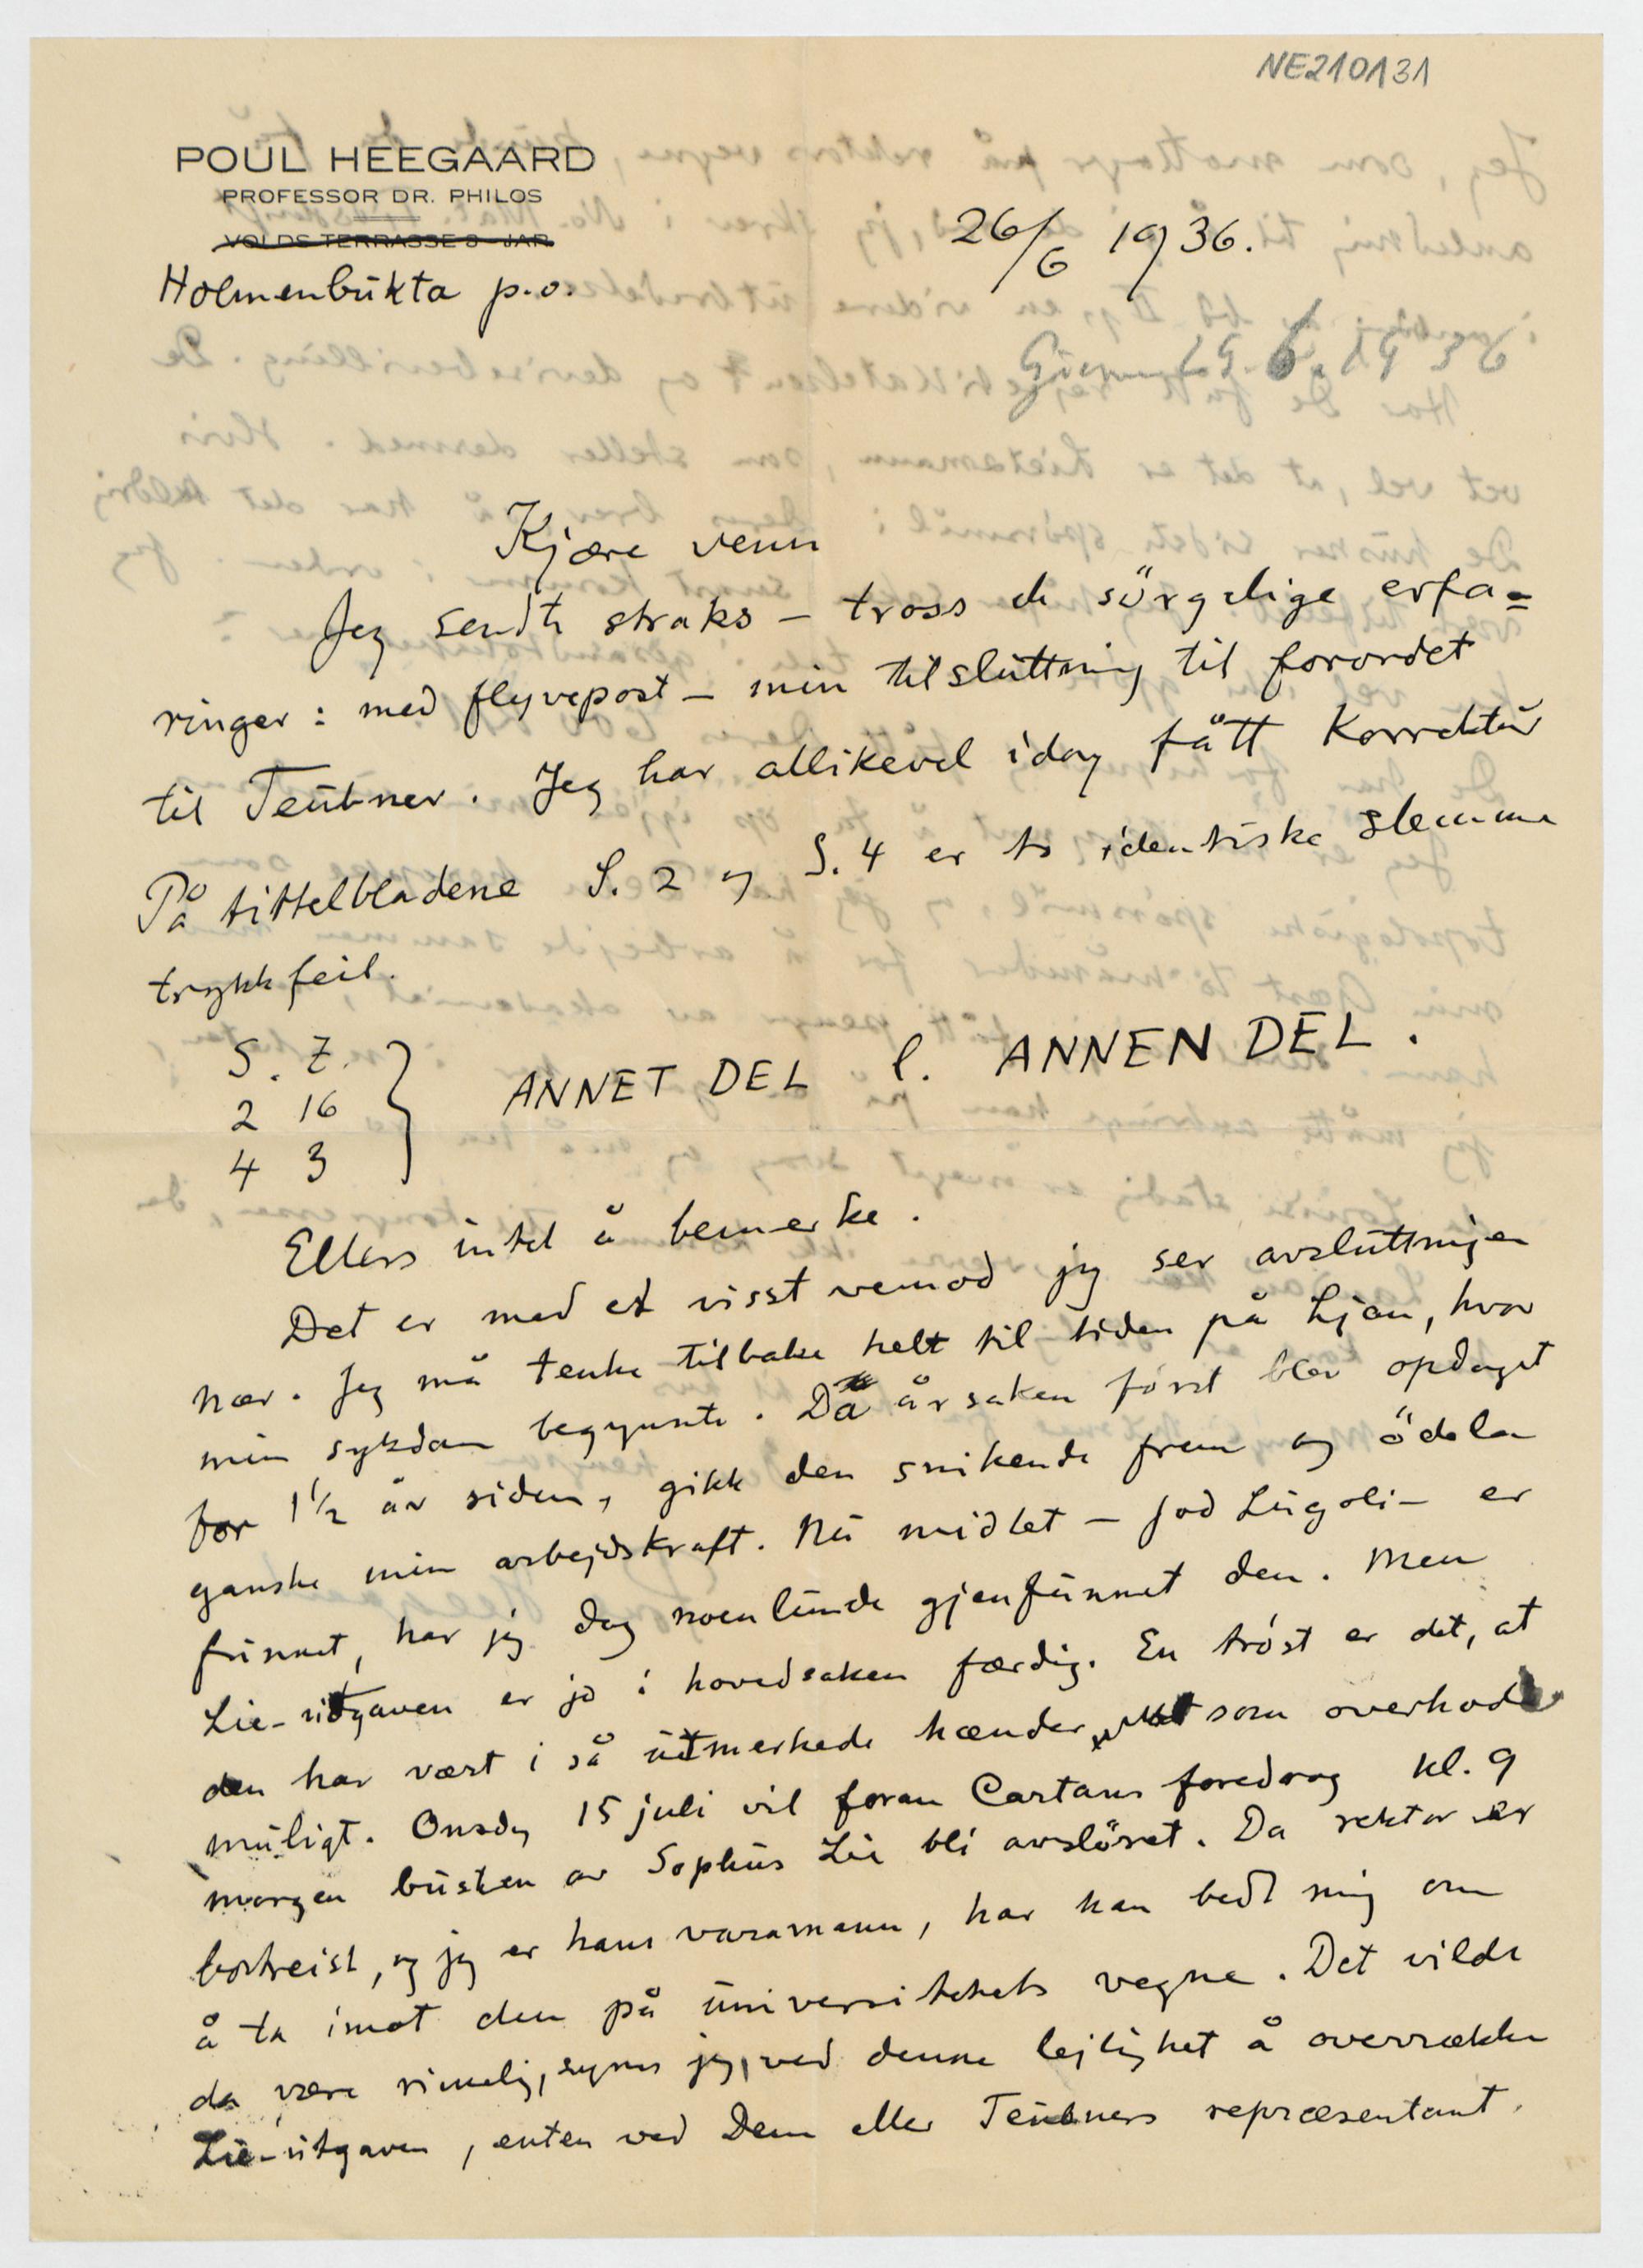 NE210131
POUL HEEGAARD
PROFESSOR DR. PHILOS
VOLDS TERRASSE 3 - JAR
26/6 1936.
Holmenbukta p.o.
29. 6. 1936
Kjære venn
Jeg sendte straks - tross de sörgelige erfa=
ringer: med flyvepost - min tilslutning til forordet
til Teubner. Jeg har allikevel idag fått Korrektur
På tittelbladene S. 2 og S. 4 er to identiske slemme
trykkfeil.
S. Z.
2 16
4 3
} ANNET DEL l. ANNEN DEL.
Ellers intet å bemerke.
Det er med et visst vemod jeg ser avslutningen
nær. Jeg må tenke tilbake helt til tiden på Ljan, hvor
min sykdom begynnte. Da årsaken först blev opdaget
for 1½ år siden, gikk den snikende frem og ödela
ganske min arbejdskraft. Nu midlet - Jod Lugoli - er
funnet, har jeg dog noenlunde gjenfunnet den. Men
Lie-utgaven er jo i hovedsaken færdig. En tröst er det, at
den har vært i så utmerkede hænder som overhodet
muligt. Onsdag 15 juli vil foran Cartans foredrag kl. 9
morgen busten av Sophus Lie bli avslöret. Da rektor er
bortreist, og jeg er hans varamann, har han bedt mig om
å ta imot den på universitetets vegne. Det vilde
da være rimelig, synes jeg, ved denne lejlighet å overrække
Lie-utgaven, enten ved Dem eller Teubners repræsentant.